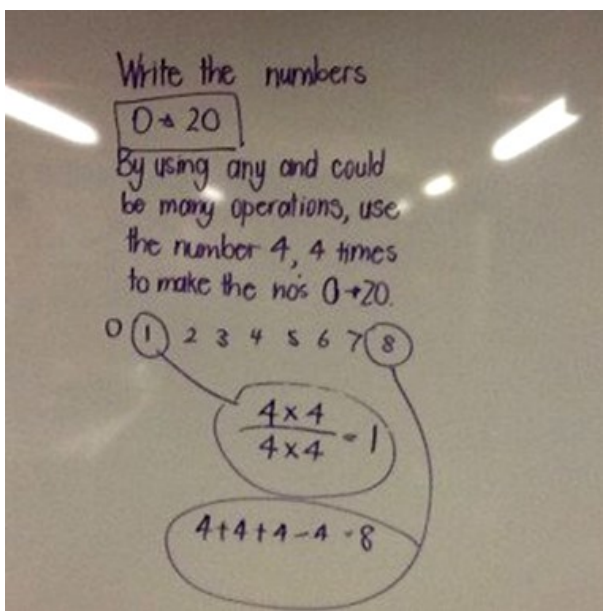 Write the numbers
0→20
By using any and could
be many operations, use
the number 4, 4 times
to make the no's 0→20.
0 1 2 3 4 5 6 7 8
4×4
4×4 = 1
4+4+4-4=8